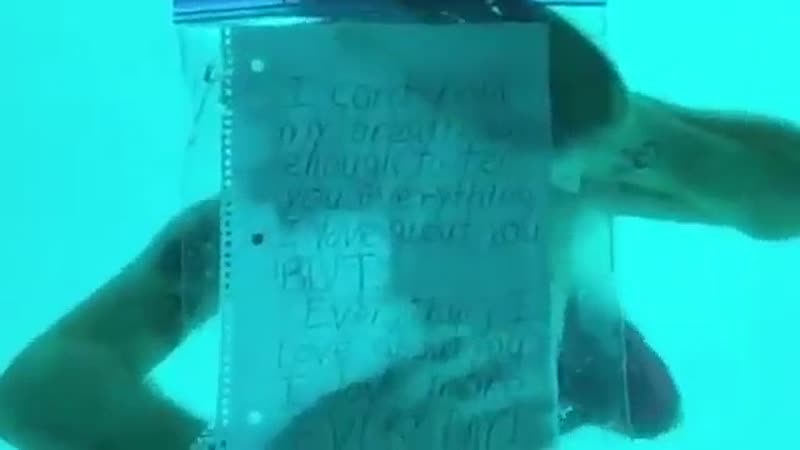 I can't hold
my breath
enough to tell
you everything
I love about you
BUT
Everything I
love about you
I love more
EVERY DAY!